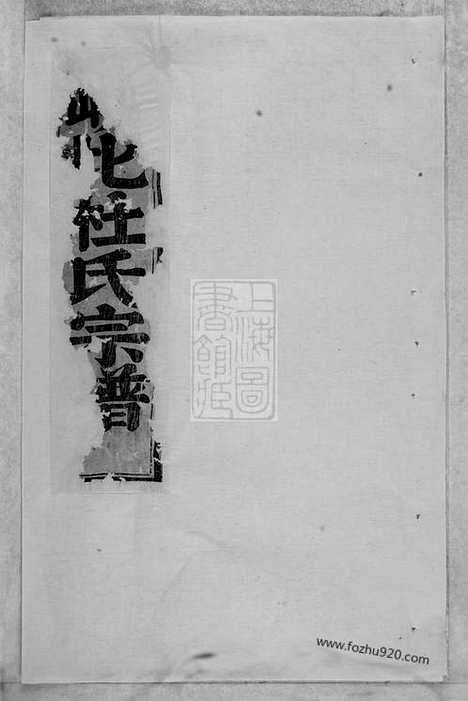 化杜氏宗譜
上海圖
書館藏
www.fozhu920.com